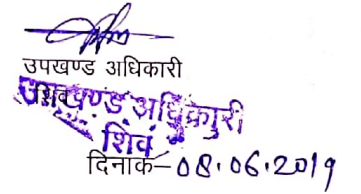 उपखण्ड अधिकारी
शिव
उपखण्ड अधिकारी
शिव
दिनांक-08.06.2019